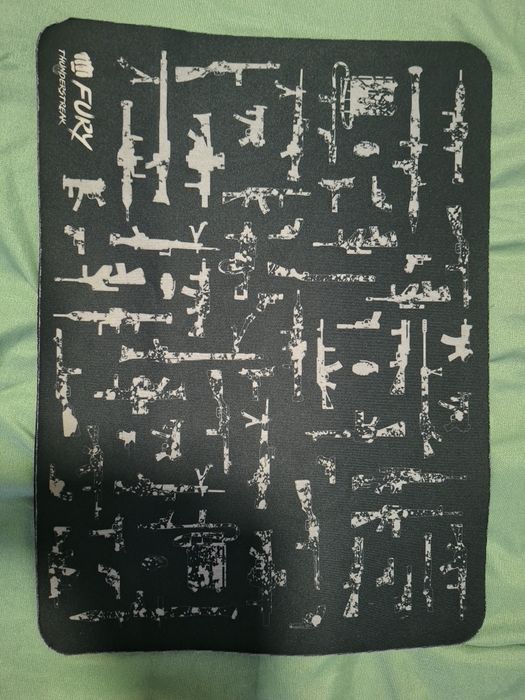 FURY
THUNDERSTREAK